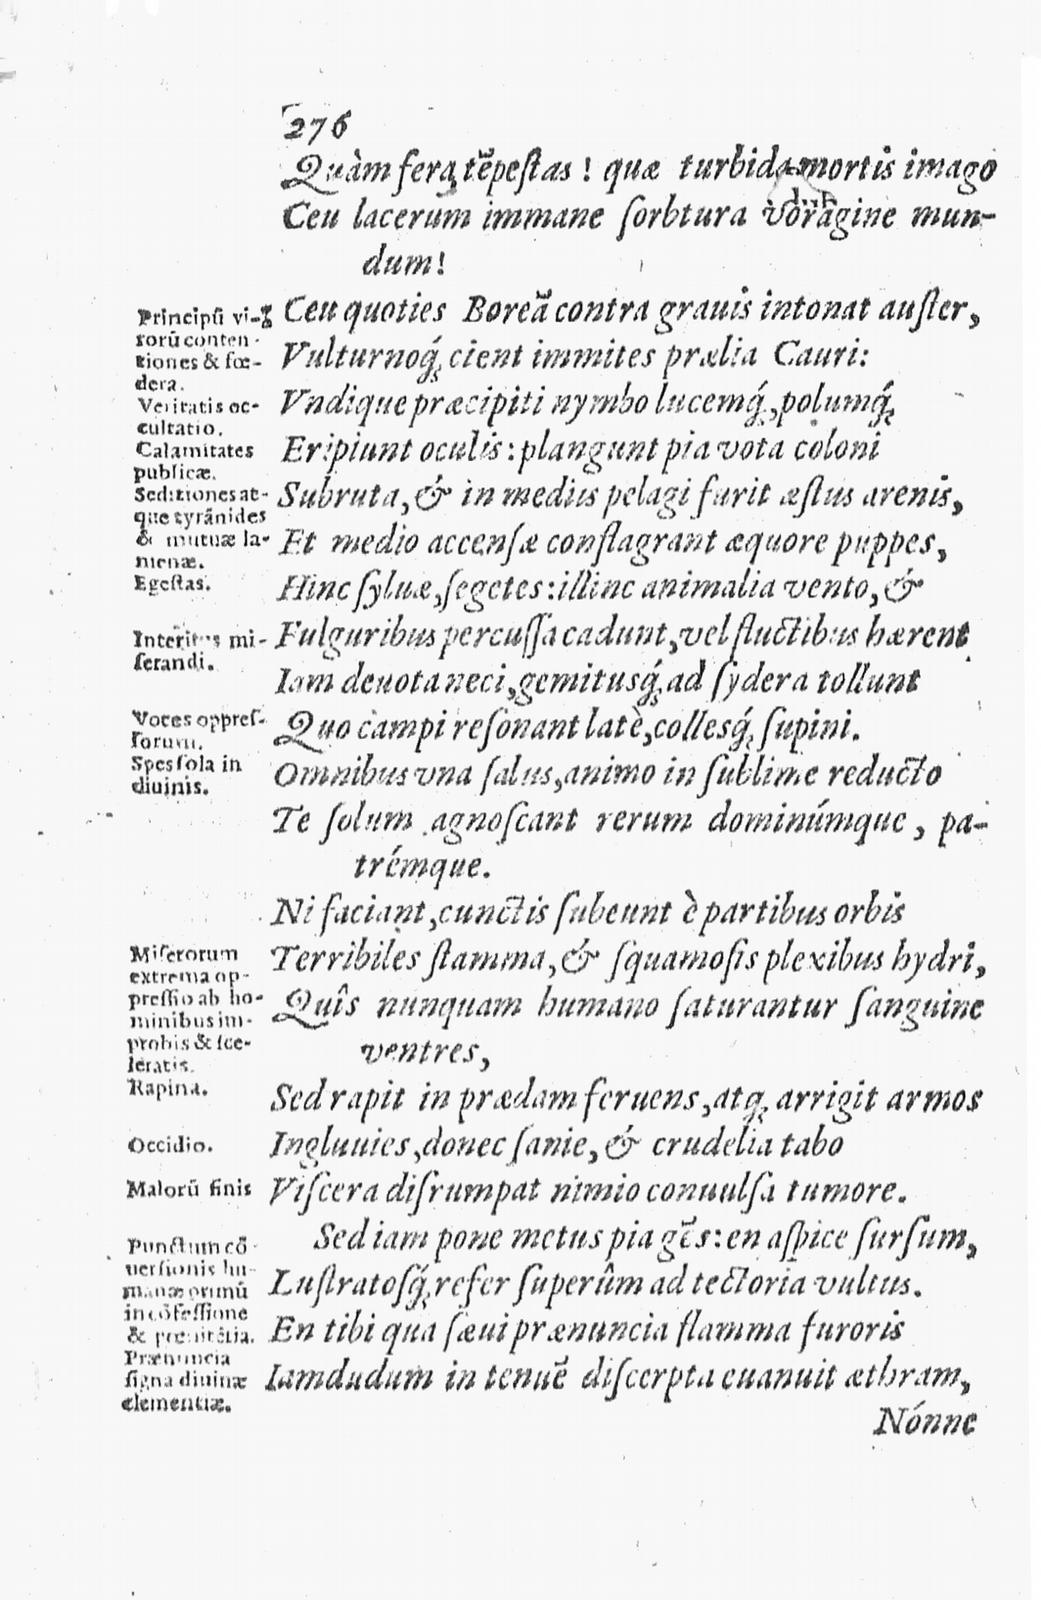 276
Quàm fera tẽpeſtas ! quæ turbida mortis imago
Ceu lacerum immane ſorbtura voragine mun-
dum!
Principũ vi-
rorũ conten-
tiones & fœ-
dera.
Veritatis oc-
cultatio.
Calamitates
publicæ.
Seditiones at-
que tyrãnides
& mutuæ la-
nienæ.
Egeſtas.
Interitus mi-
ſerandi.
Voces oppreſ-
ſorum.
Spes ſola in
diuinis.
Ceu quoties Boreã contra grauis intonat auſter,
Vulturnoq́; cient immites prælia Cauri:
Vndique præcipiti nymbo lucemq́;, polumq́;
Eripiunt oculis: plangunt pia vota coloni
Subruta, & in medius pelagi furit æſtus arenis,
Et medio accenſæ conflagrant æquore puppes,
Hinc ſyluæ, ſegetes: illinc animalia vento, &
Fulguribus percuſſa cadunt, vel fluctibus hærent
Iam deuota neci, gemitusq́; ad ſydera tollunt
Quo campi reſonant latè, collesq́; ſupini.
Omnibus vna ſalus, animo in ſublime reducto
Te ſolum agnoſcant rerum dominúmque, pa-
trémque.
Ni faciant, cunctis ſubeunt è partibus orbis
Miſerorum
extrema op-
preſſio ab ho-
minibus im-
probis & ſce-
leratis.
Rapina.
Occidio.
Malorũ finis
Terribiles flamma, & ſquamoſis plexibus hydri,
Quîs nunquam humano ſaturantur ſanguine
ventres,
Sed rapit in prædam feruens, atq; arrigit armos
Ingluuies, donec ſanie, & crudelia tabo
Viſcera diſrumpat nimio conuulſa tumore.
Punctum cõ-
uerſionis hu-
manæ primũ
in cõfeſſione
& pœnitẽtia.
Prænuncia
ſigna diuinæ
clementiæ.
Sed iam pone metus pia gẽs: en aſpice ſurſum,
Luſtratoſq́; refer ſuperûm ad tectoria vultus.
En tibi qua ſæui prænuncia flamma furoris
Iamdudum in tenuẽ diſcerpta euanuit æthram,
Nónne